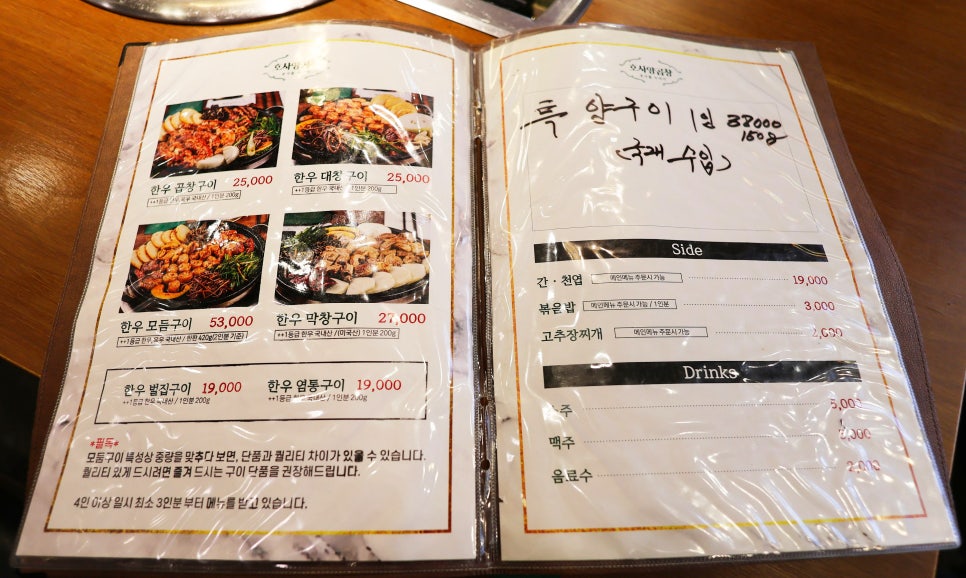 한우 곱창구이 25,000
++1등급 한우, 육우 국내산 / 1인분 200g
한우 대창구이 25,000
++1등급 한우 국내산 / 1인분 200g
한우 모듬구이 53,000
++1등급 한우, 육우 국내산 / 한판 420g(2인분 기준)
한우 막창구이 27,000
++1등급 한우 국내산 / (미국산) 1인분 200g
한우 벌집구이 19,000
++1등급 한우 국내산 / 1인분 200g
한우 염통구이 19,000
++1등급 한우 국내산 / 1인분 200g
*필독*
모듬구이 특성상 중량을 맞추다 보면, 단품과 퀄리티 차이가 있을 수 있습니다.
퀄리티 있게 드시려면 즐겨 드시는 구이 단품을 권장해드립니다.
4인 이상 일시 최소 3인분 부터 메뉴를 받고 있습니다.
호사양곱창
특 양구이 1인 38000
150g
수입)
Side
간 · 천엽 메인메뉴 주문시 가능 19,000
볶음밥 메인메뉴 주문시 가능 / 1인분 3,000
고추장찌개 메인메뉴 주문시 가능
Drinks
5,000
맥주
음료수 2,000